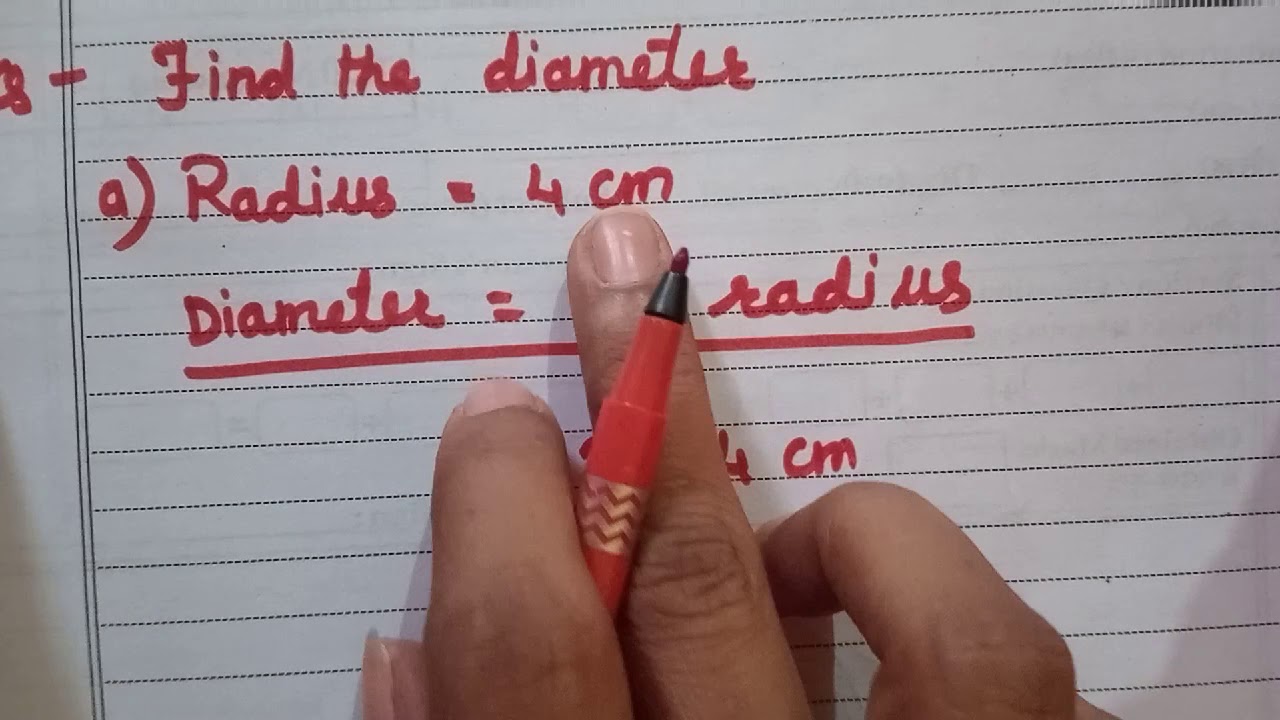 - Find the diameter
a) Radius = 4 cm
Diameter = radius
4 cm